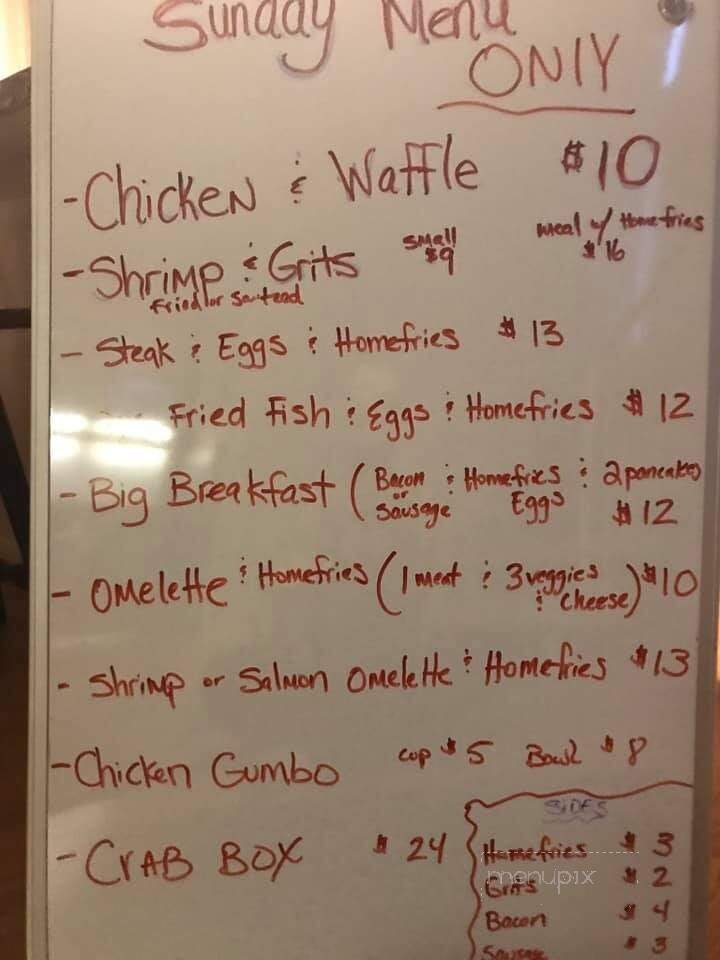 Sunday Menu
ONLY
- Chicken & Waffle $10
- Shrimp & Grits small $9 meal w/ Homefries $16
Fried or Sautead
- Steak & Eggs & Homefries $13
Fried Fish & Eggs & Homefries $12
- Big Breakfast (Bacon or Sausage & Homefries & 2 pancakes
Eggs $12
- Omelette & Homefries (1 meat & 3 veggies & cheese) $10
- Shrimp or Salmon Omelette & Homefries $13
- Chicken Gumbo cup $5 Bowl $8
- CrAB BOX $24
SIDES
Homefries $3
Grits $2
Bacon $4
Sausage $3
menupix